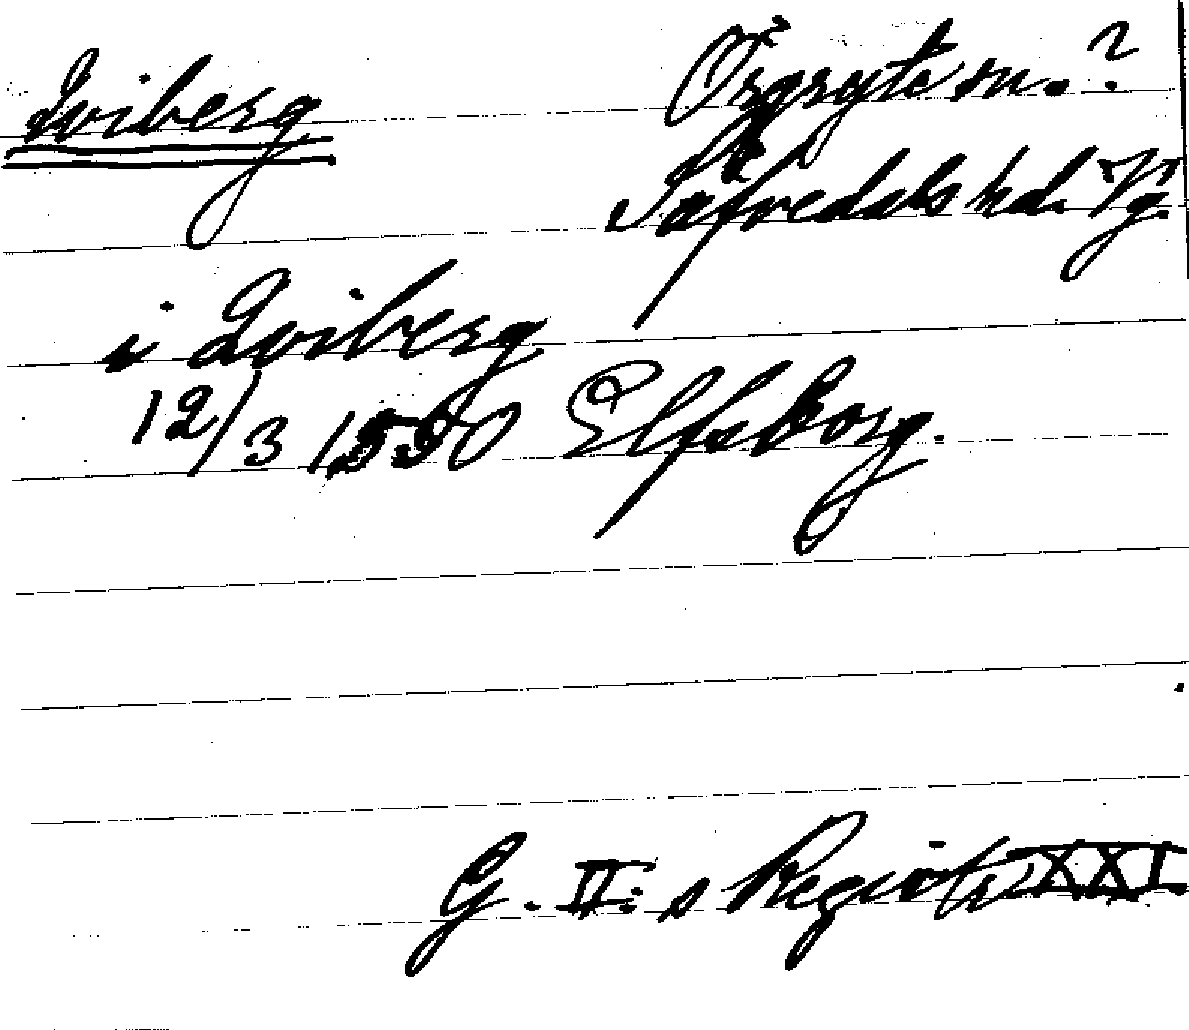 Qviberg Örgryte sn.?
Säfvedals hd. Vg.
i Qviberg
12/3 1550 Elfsborg.
G. II:s Registr XXI